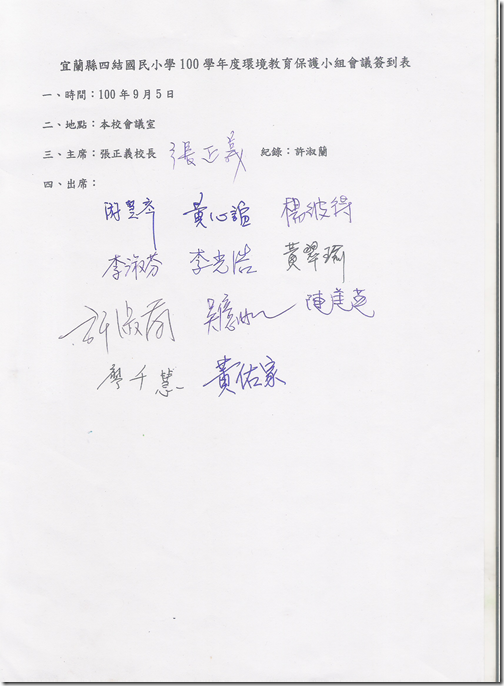 宜蘭縣四結國民小學100學年度環境教育保護小組會議簽到表
一、時間：100年9月5日
二、地點：本校會議室
三、主席：張正義校長 張正義 紀錄：許淑蘭
四、出席：
黃心誼
李淑芬 李光浩 黃翠瑜
許淑蘭 陳美英
廖千慧 黃佑家